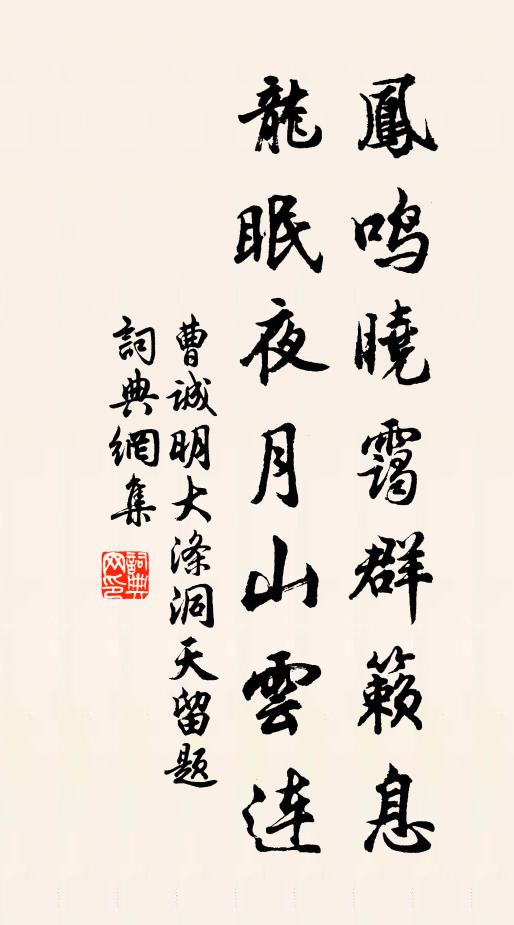 鳳鳴曉靄群籟息
龍眠夜月山雲連
曹诚明大涤洞天留题
詞典網集
詞典
网印